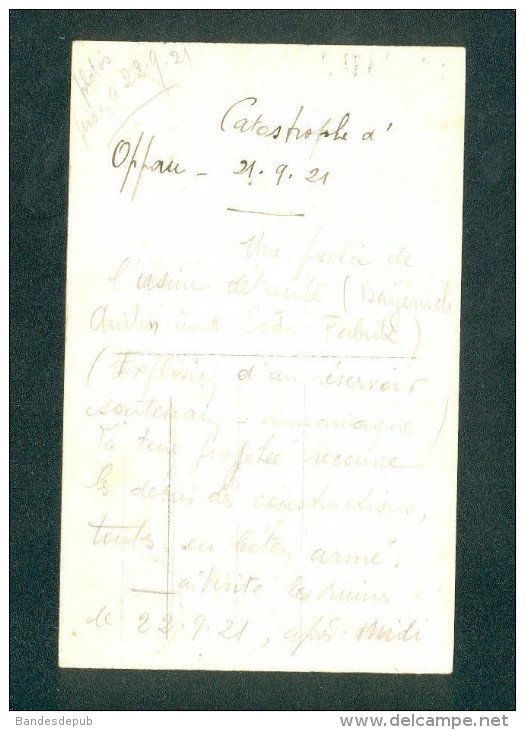 photos
le 22.9.21
Catastrophe d'
Oppau - 21.9.21
Une partie de
l'usine détruite (Bayerische
Anilin und Soda-Fabrik)
(Explosion d'un réservoir
contenant ammoniaque)
la terre projetée recouvre
les débris des constructions,
toutes en béton armé.
ai visité les ruines
le 22.9.21, après-midi
Bandesdepub
www.delcampe.net